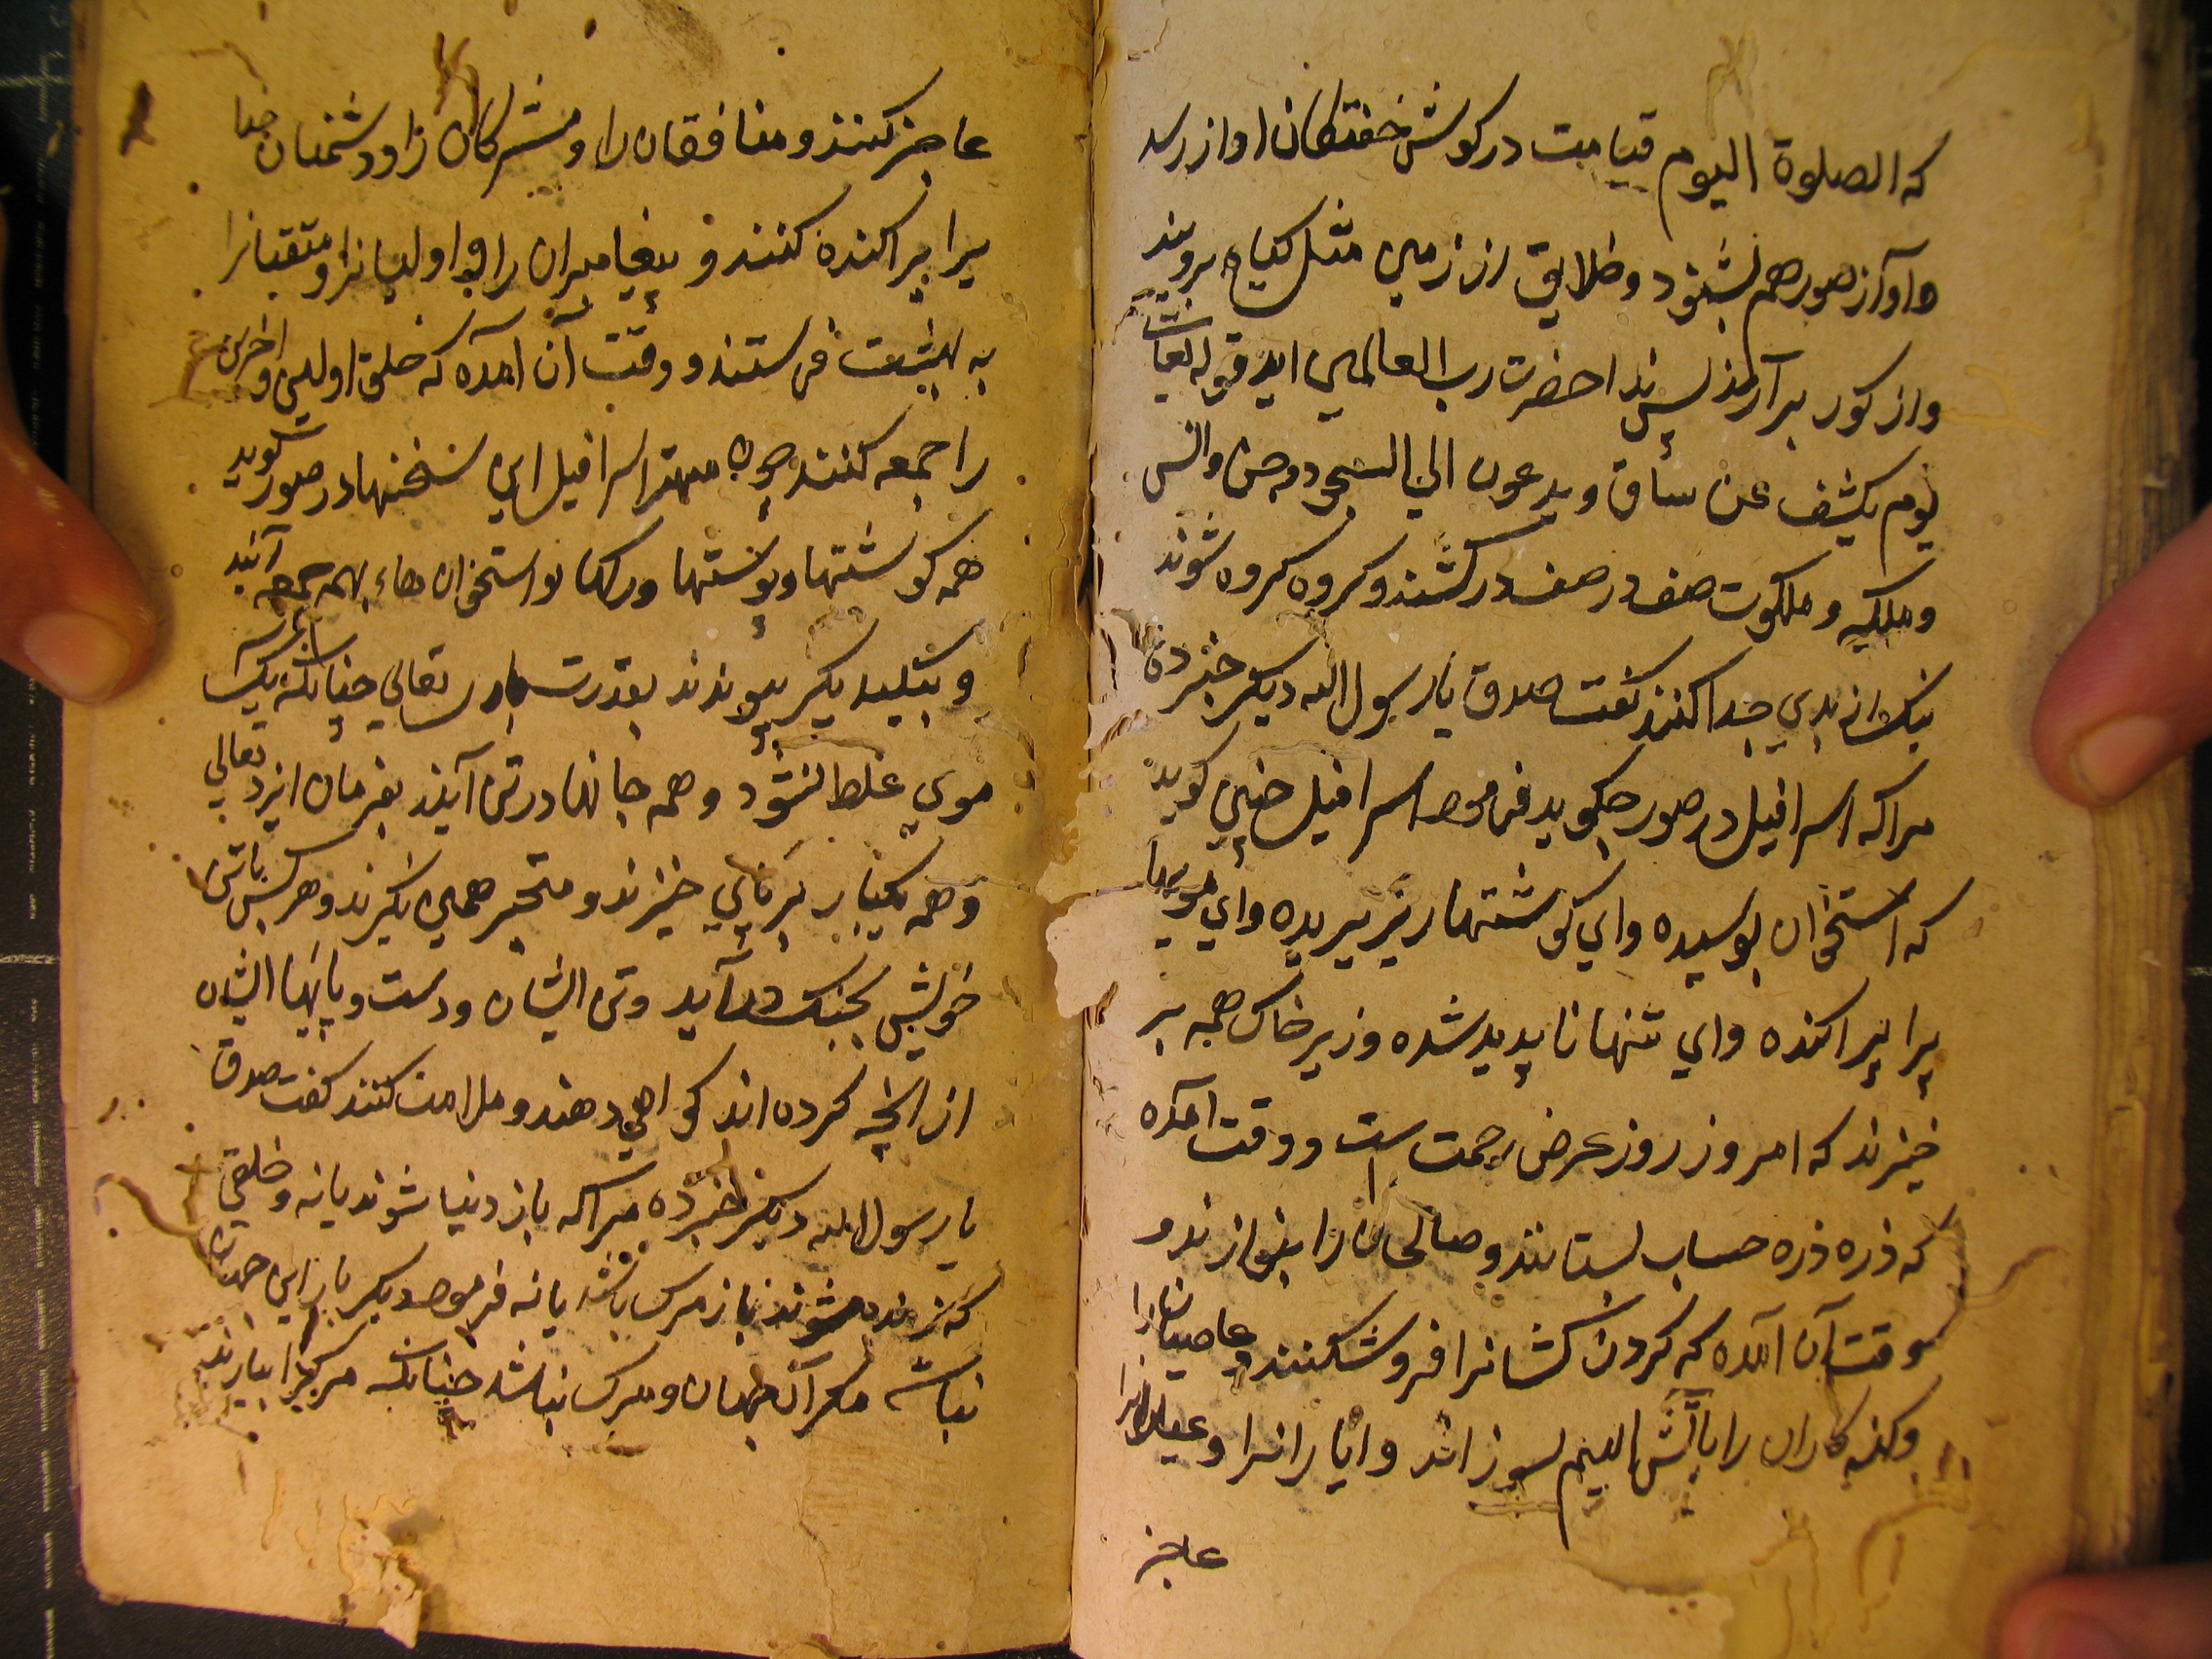 که الصلوة الیوم قیامت در کوش خفتکان اواز رسد
واواز صور هم بشنود و خلایق از زمین مثل کیاه بروید
واز کور برآرند پس ندا حضرت رب العالمین اید قوله تعالی
یوم یکشف عن ساق ویدعون الی السجود وجن وانس
وملکیه وملکوت صف در صف در کشند وکروه کروه شوند
نیک از بدی جدا کنند کفت صدق یا رسول الله دیکر خبر ده
مرا که اسرافیل در صور چکوید فرمود اسرافیل چنین کوید
که استخوان بوسیده وای کوشتها ریزیریده وای مویها
پرا پراکنده وای تنها ناپدید شده وزیر خاک همه بر
خیزند که امروز روز عرض رحمت است ووقت آمده
که ذره ذره حساب بستانند وصالحان را بنوازند و
وقت آن آمده که کردن کشانرا فروشکنند وعاصیانرا
وکنه کاران را باتش الیم بسوزانند
عاجز
عاجز کنند ومنافقان را ومشرکان را ودشمنان خدا
پرا پراکنده کنند و پیغامبران را و اولیانرا ومتقیانرا
به بهشت فرستند ووقت آن آمده که خلق اولین واخرین
را جمعه کنند چون مهتر اسرافیل این سخنها در صور کوید
همه کوشتها وپوستها ورکها واستخوان هاء بهمه جمعه آیند
وبیکدیکر پیوندند بقدرت تعالی چنانکه یک
موی غلط نشود وهمه جانها در تن آیند بفرمان ایزد تعالی
وهمه یکبار بر پای خیزند ومتحیر همی نکرند وهر کس باتن
خویش بجنک درآید وتن ایشان ودست وپایها ایشان
از انچه کرده اند کواهی دهند وملامت کنند کفت صدق
یا رسول الله دیکر خبر ده مرا که باز دنیا شوند یا نه وخلقی
که زنده شوند باز مرک باشد یا نه فرمود دیکر بار این جهان
نباشد مکر آن جهان ومرک نباشد چنانکه مرکرا بیارند